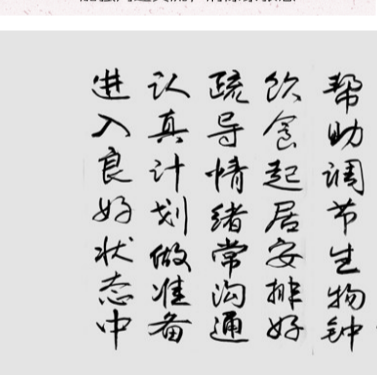 帮助调节生物钟
饮食起居安排好
疏导情绪常沟通
认真计划做准备
进入良好状态中